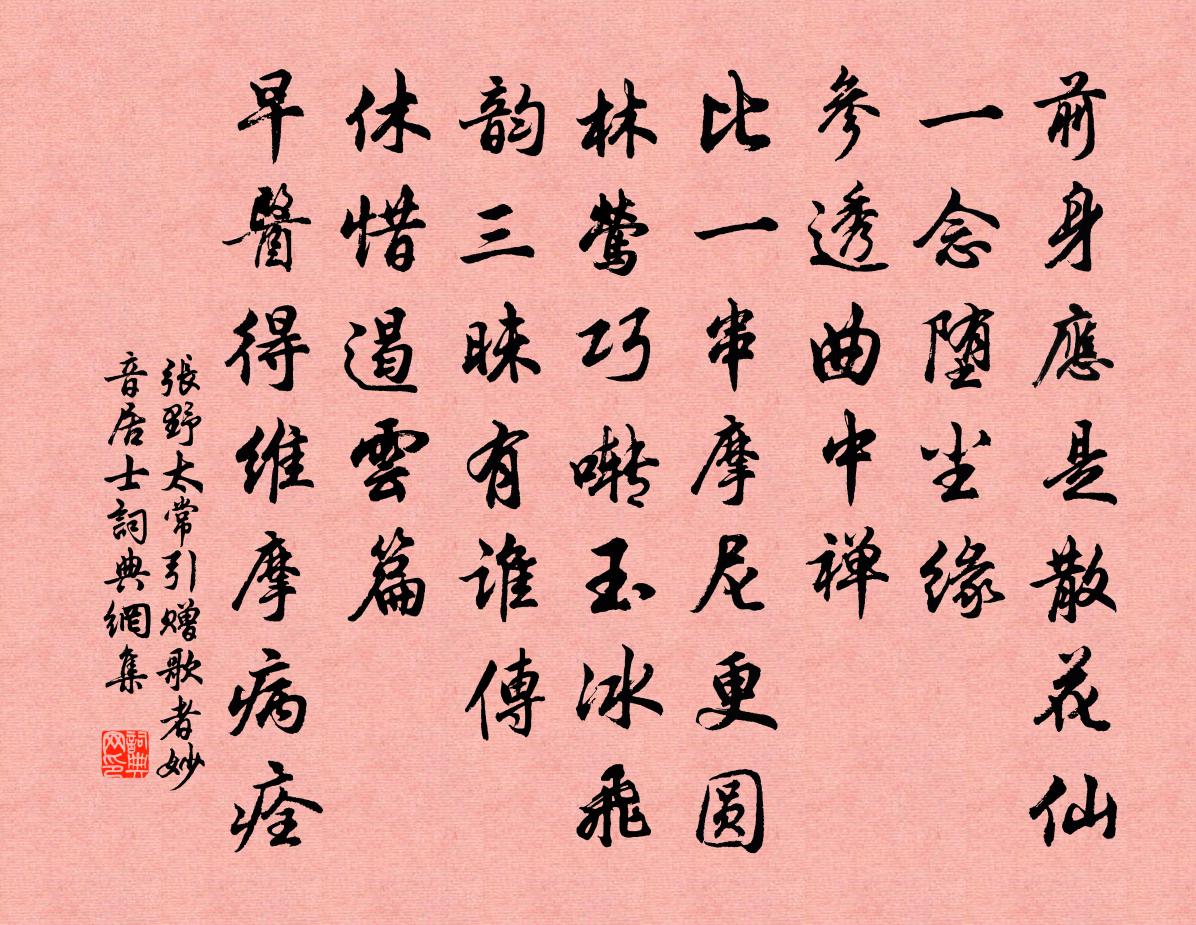 前身應是散花仙
一念堕尘緣
參透曲中禅
比一串摩尼更圆
林鶯巧囀玉冰飛
韵三昧有誰傳
休惜遏雲篇
早醫得維摩病痊
張野太常引赠歌者妙
音居士詞典網集
詞典
网印